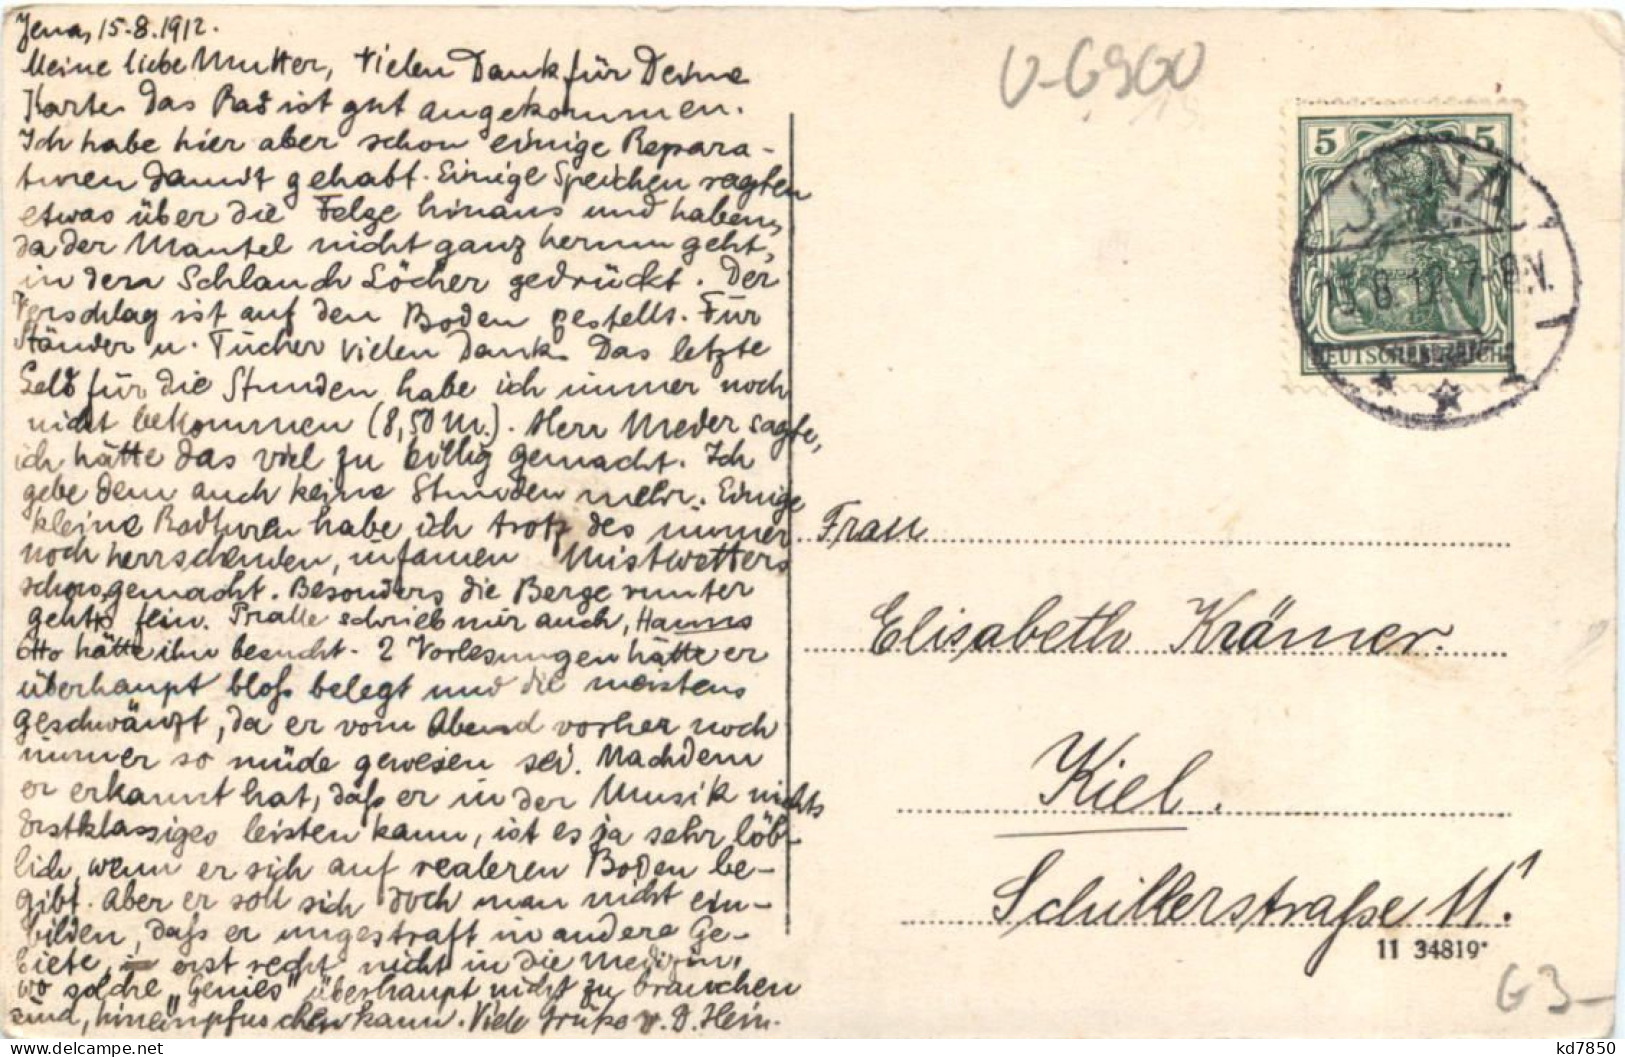 Jena, 15.8.1912.
Meine liebe Mutter, vielen Dank für Deine
Karte. Das Rad ist gut angekommen.
Ich habe hier aber schon einige Repara-
turen damit gehabt. Einige Speichen ragten
etwas über die Felge hinaus und haben,
da der Mantel nicht ganz herum geht,
in den Schlauch Löcher gedrückt. Der
Verschlag ist auf den Boden gestellt. Für
Ständer u. Tücher vielen Dank. Das letzte
Geld für die Stunden habe ich immer noch
nicht bekommen (8,50 M.). Herr Meder sagte,
ich hätte das viel zu billig gemacht. Ich
gebe dem auch keine Stunden mehr. Einige
kleine Radturen habe ich trotz des immer
noch herrschenden, infamen Mistwetters
schon gemacht. Besonders die Berge runter
gehts fein. Pralle schrieb mir auch, Hanns
Otto hätte ihn besucht. 2 Vorlesungen hätte er
überhaupt bloß belegt und die meistens
geschwänzt, da er vom Abend vorher noch
immer so müde gewesen sei. Nachdem
er erkannt hat, daß er in der Musik nichts
erstklassiges leisten kann, ist es ja sehr löb-
lich, wenn er sich auf realeren Boden be-
gibt. Aber er soll sich doch man nicht ein-
bilden, daß er ungestraft in andere Ge-
biete, erst recht nicht in die Medizin,
wo solche „Genies“ überhaupt nicht zu brauchen
sind, hineinpfuschen kann. Viele Grüße v. D. Hein.
V-6900
5 5
JENA
15.8.12.7-8.V.
DEUTSCHES REICH
Frau
Elisabeth Krämer.
Kiel.
Schillerstraße 11¹.
11 34819*
G3-
kd7850